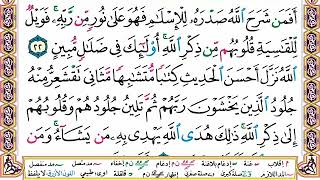 أَفَمَن شَرَحَ ٱللَّهُ صَدْرَهُۥ لِلْإِسْلَٰمِ فَهُوَ عَلَىٰ نُورٍ مِّن رَّبِّهِۦ ۚ فَوَيْلٌ
لِّلْقَٰسِيَةِ قُلُوبُهُم مِّن ذِكْرِ ٱللَّهِ ۚ أُو۟لَٰٓئِكَ فِى ضَلَٰلٍ مُّبِينٍ ٢٢
ٱللَّهُ نَزَّلَ أَحْسَنَ ٱلْحَدِيثِ كِتَٰبًا مُّتَشَٰبِهًا مَّثَانِىَ تَقْشَعِرُّ مِنْهُ
جُلُودُ ٱلَّذِينَ يَخْشَوْنَ رَبَّهُمْ ثُمَّ تَلِينُ جُلُودُهُمْ وَقُلُوبُهُمْ
إِلَىٰ ذِكْرِ ٱللَّهِ ۚ ذَٰلِكَ هُدَى ٱللَّهِ يَهْدِى بِهِۦ مَن يَشَآءُ ۚ وَمَن